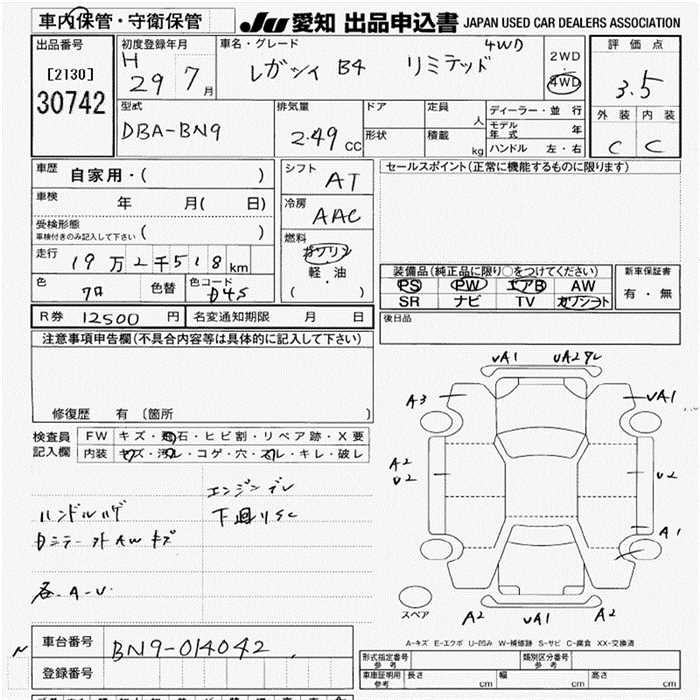 車内保管・守衛保管
JU 愛知 出品申込書 JAPAN USED CAR DEALERS ASSOCIATION
出品番号 [2130] 30742
初度登録年月 H 29 7月
車名・グレード レガシィ B4 リミテッド 4WD
2WD・4WD
評価点 3.5
外装 内装
C C
型式 DBA-BN9
排気量 2.49 CC
ドア 形状
定員 人
積載 kg
ディーラー・並行
モデル年式 年
ハンドル 左・右
車歴 自家用・( )
車検 年 月( 日)
受検形態 車検付きのみ記入して下さい ( )
走行 19万2千518km
色 クロ 色替 色コード D4S
シフト AT
冷房 AAC
燃料 ガソリン 軽・油 ( )
セールスポイント(正常に機能するものに限ります)
装備品(純正品に限り○をつけてください)
PS PW エアB AW
SR ナビ TV カワシート
新車保証書 有・無
R券 12500 円 名変通知期限 月 日
後日品
注意事項申告欄(不具合内容等は具体的に記入して下さい)
修復歴 有 〔箇所 〕
検査員記入欄
FW キズ・飛石・ヒビ割・リペア跡・X要
内装 キズ・汚レ・コゲ・穴・スレ・キレ・破レ
エンジン
ハンドルハゲ 下回りSC
AWキズ
各A-U
UA1 UA2
A3 UA1
A2 U2 U2
A1
A2 UA1 A2
スペア
A-キズ E-エクボ U-凹み W-補修跡 S-サビ C-腐食 XX-交換済
車台番号 BN9-014042
登録番号
形式指定番号 参考 類別区分番号 参考
車庫証明用 参考 長さ cm 幅 cm 高さ cm